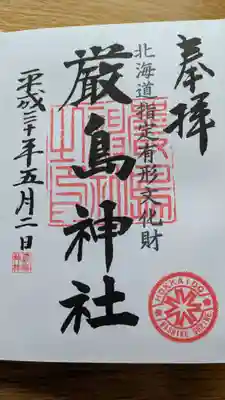 奉拝
北海道指定有形文化財
厳島神社
平成三十年五月二日
HOKKAIDO